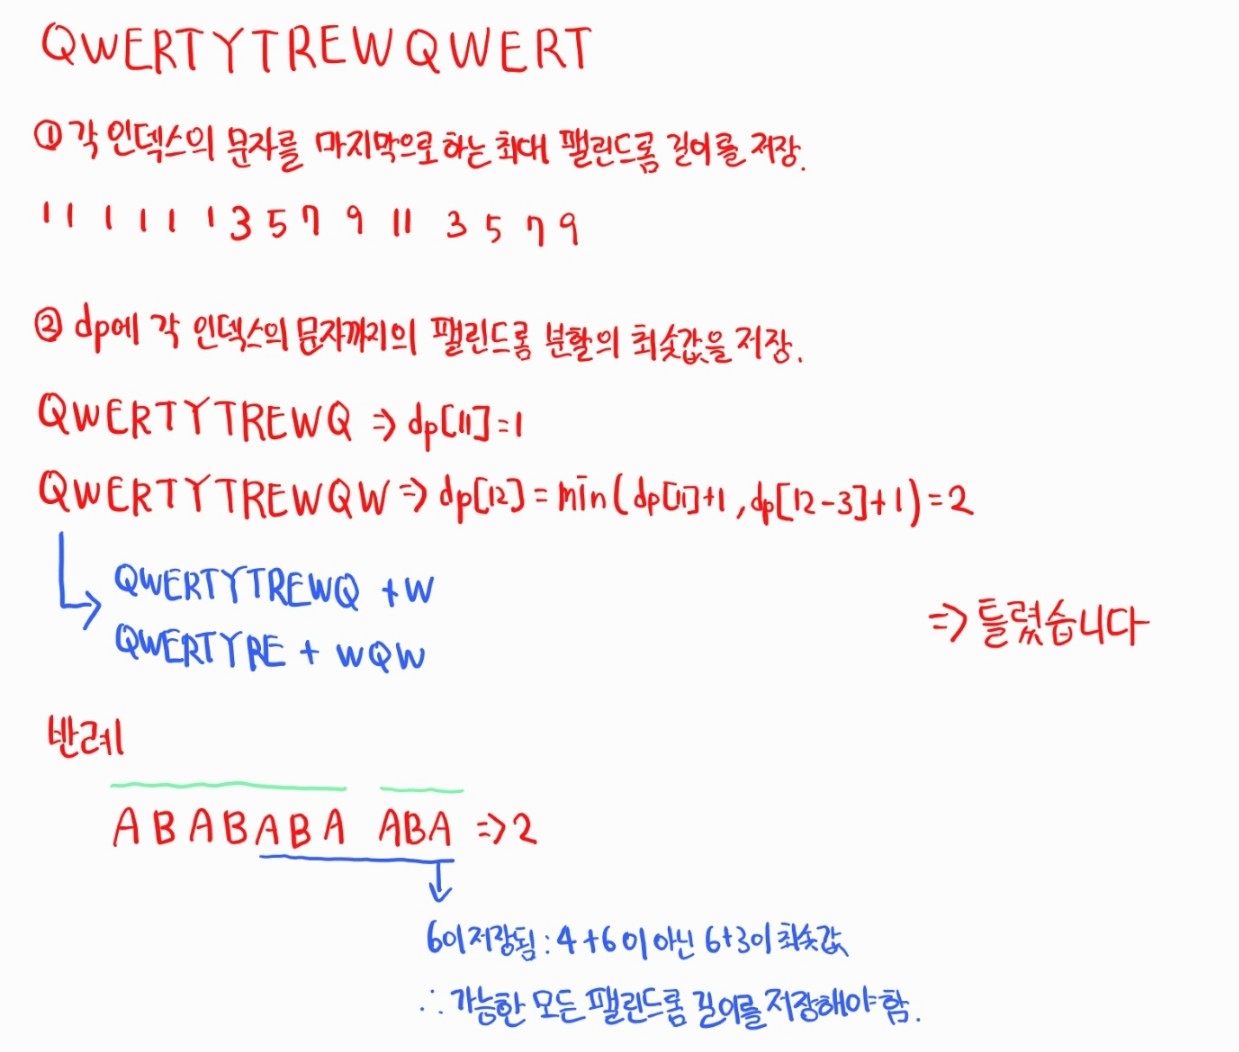 QWERTYTREWQWERT
① 각 인덱스의 문자를 마지막으로 하는 최대 팰린드롬 길이를 저장.
1 1 1 1 1 1 3 5 7 9 11 3 5 7 9
② dp에 각 인덱스의 문자까지의 팰린드롬 분할의 최솟값을 저장.
QWERTYTREWQ => dp[11]=1
QWERTYTREWQW => dp[12] = min(dp[11]+1, dp[12-3]+1) = 2
QWERTYTREWQ + W
QWERTYRE + WQW
=> 틀렸습니다
반례
ABABABA ABA => 2
6이 저장됨 : 4+6이 아닌 6+3이 최솟값
∴ 가능한 모든 팰린드롬 길이를 저장해야 함.